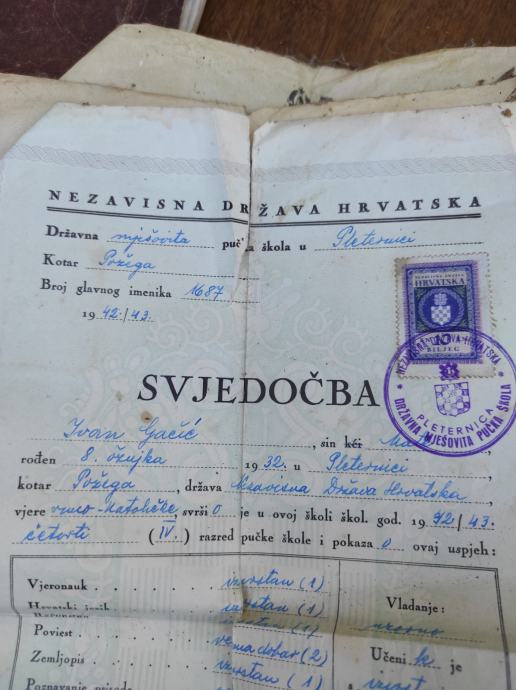 NEZAVISNA DRŽAVA HRVATSKA
Državna mješovita pučka škola u Pleternici
Kotar Požega
Broj glavnog imenika 1687
1942./43.
HRVATSKA
10
BILJEG
NEZAVISNA DRŽAVA HRVATSKA
PLETERNICA
DRŽAVNA MJEŠOVITA PUČKA ŠKOLA
SVJEDOČBA
Ivan Gačić, sin kći
rođen 8. ožujka 1932. u Pleternici
kotar Požega, država Nezavisna Država Hrvatska,
vjere rimo-katoličke svrši o je u ovoj školi škol. god. 1942/43.
četvrti (IV.) razred pučke škole i pokaza o ovaj uspjeh:
Vjeronauk izvrstan (1)
Hrvatski jezik izvrstan (1)
Poviest vrlo dobar (2)
Zemljopis izvrstan (1)
Poznavanje prirode
Vladanje:
uzorno
Učenik je